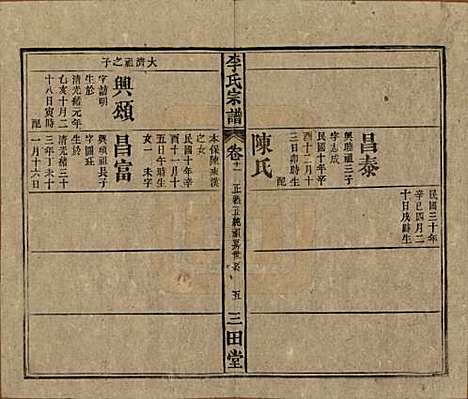 民國三十年
辛巳四月二
十日戌時生
昌泰
興聰祖三子
字志成
民國十年辛
酉十二月十
三日卯時生
配
陳氏
李氏宗譜
卷十一
五
三田堂
本保陳
之女
民國十年辛
酉十一月十
五日午時生
女一 未字
昌富
興頌祖長子
字國珏
生於
清光緒三十
三年丁未十
一月十六日
配
大濟祖之子
興頌
字請明
生於
清光緒元年
乙亥十月二
十八日寅時